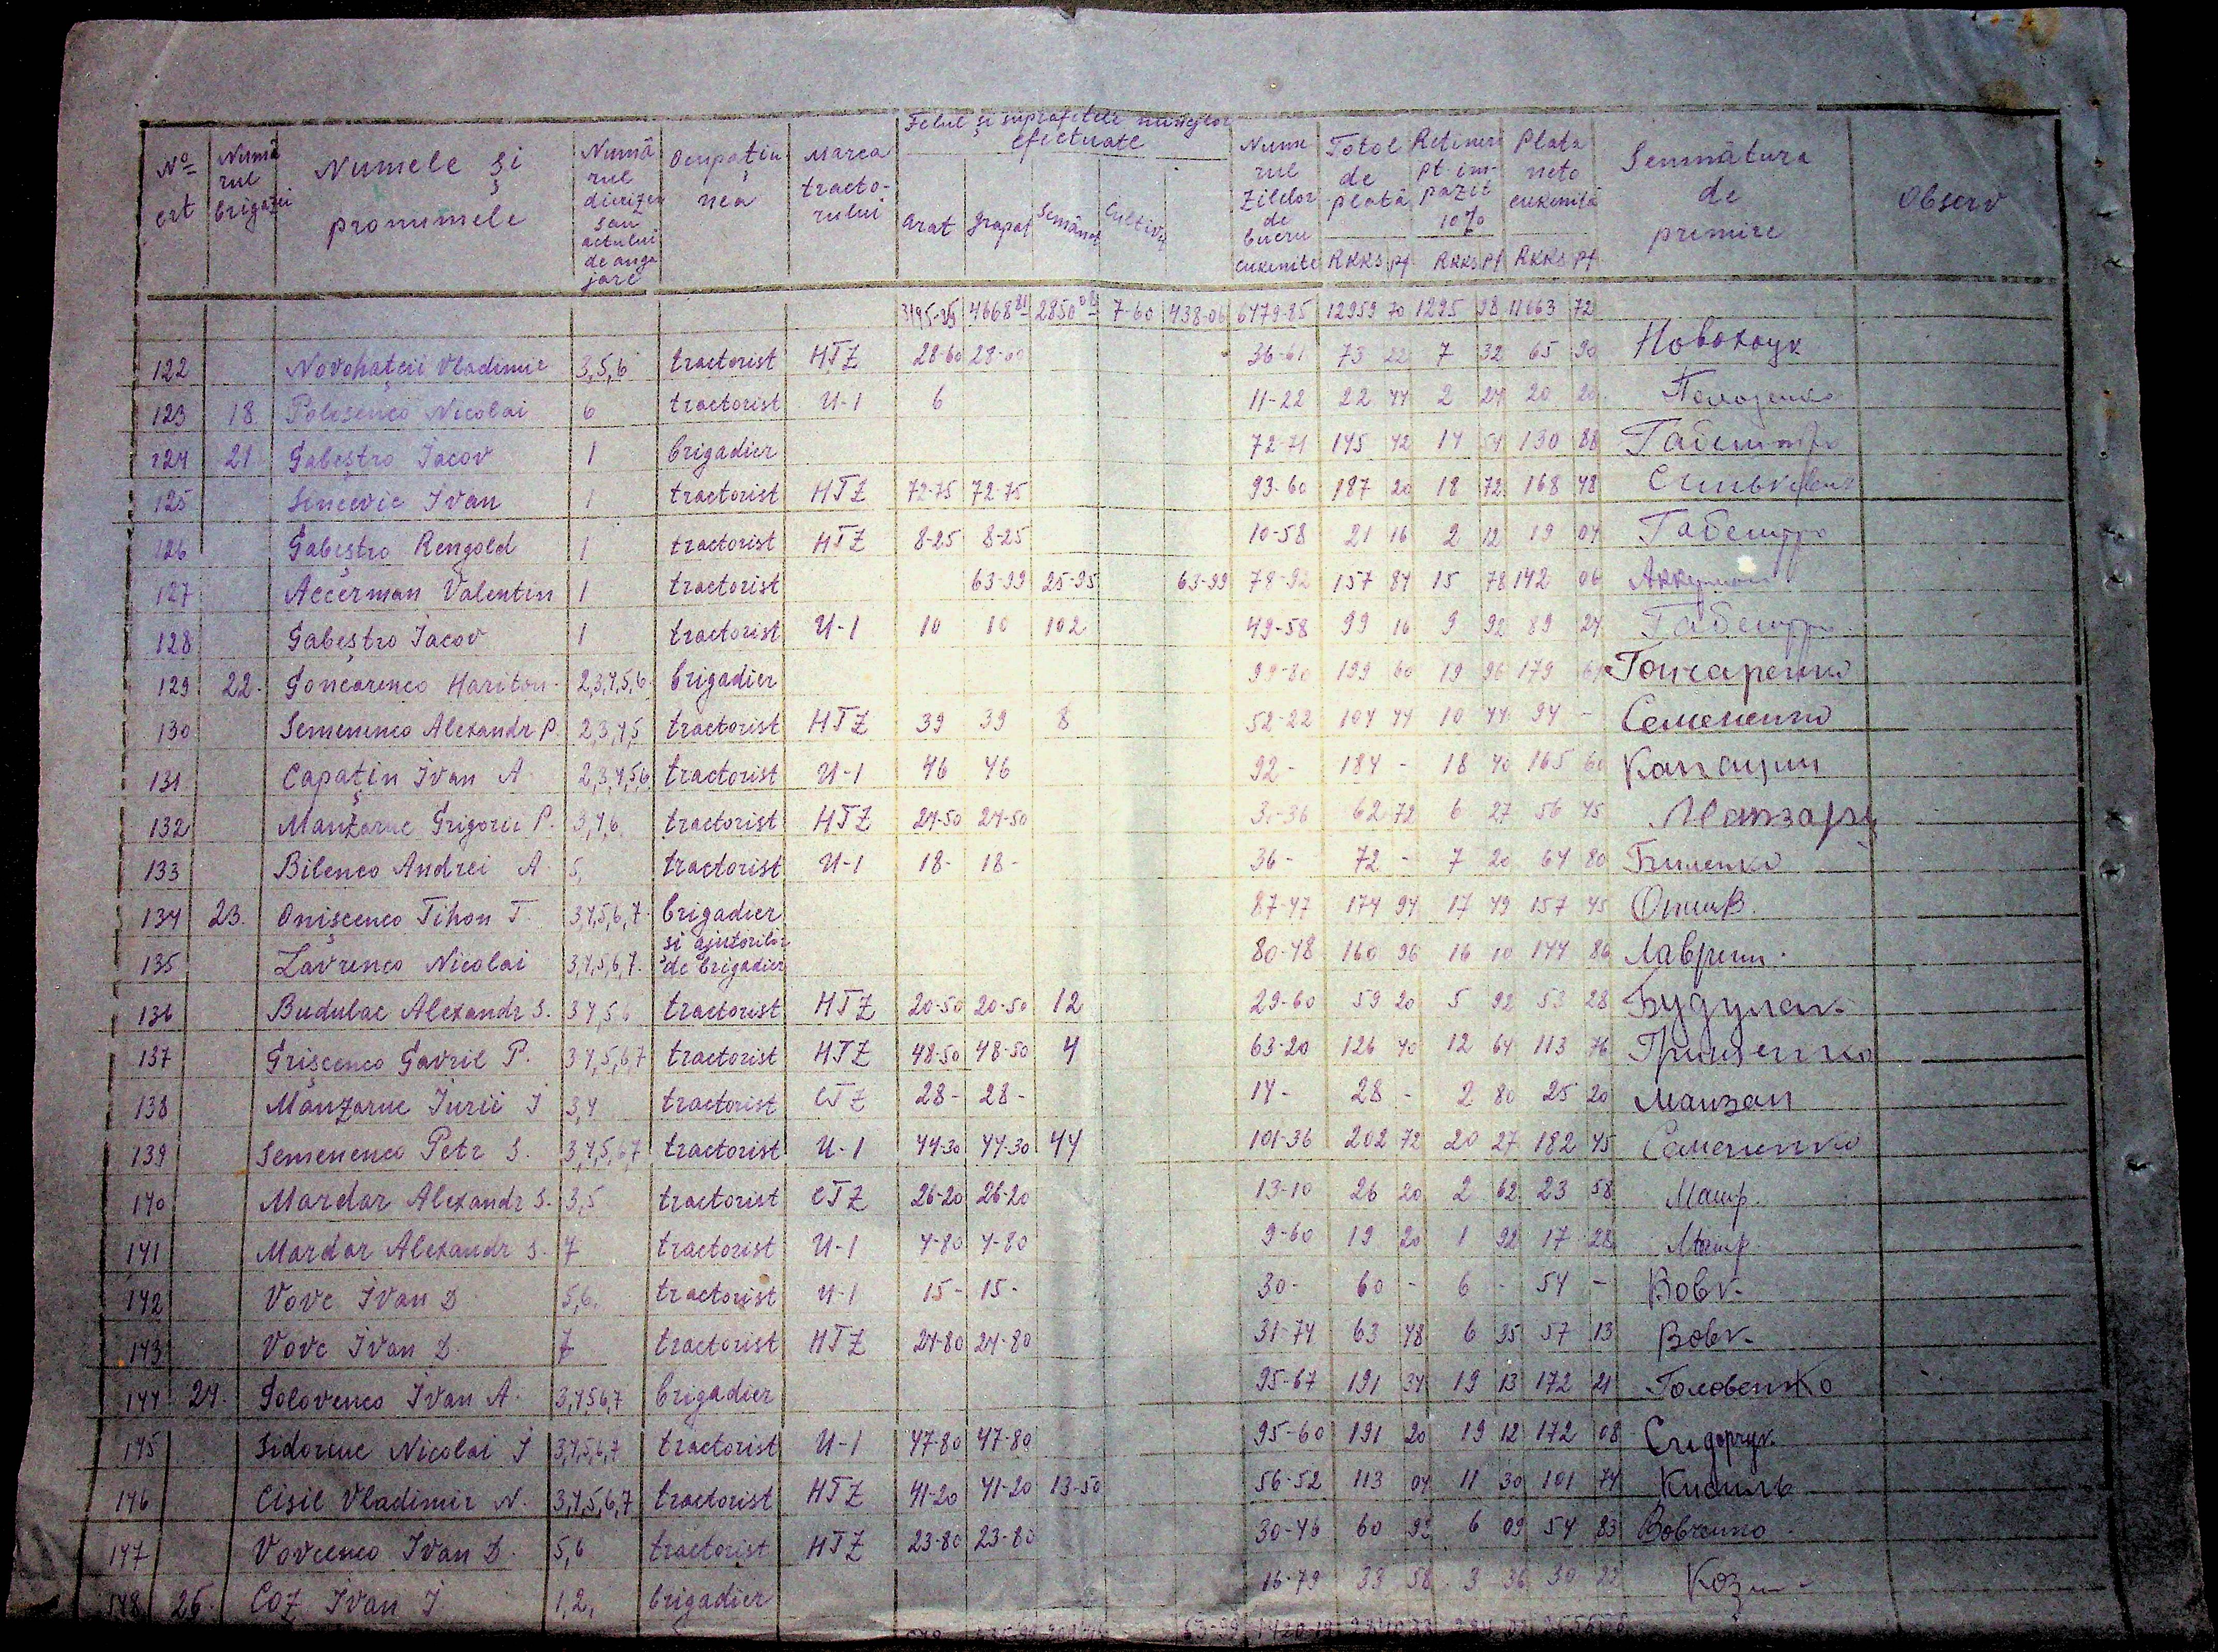 Felul și suprafetele muncilor efectuate
Nº crt | Numărul brigăzii | Numele și pronumele | Numărul diviziei sau actului de angajare | Ocupațiunea | Marca tractorului | Arat | Grapat | Semănat | Cultiv | Numerul zilelor de lucru cuvenite | Total de plată RKKS pf | Retinere pt. impozit 10% RKKS pf | Plata neto cuvenită RKKS pf | Semnătura de primire | Observ
3195-25 4668 81 2850 7-60 438-06 6479-85 12959 70 1295 98 11663 72
122 Novohațcii Vladimir 3,5,6 tractorist HTZ 28-60 28-00 36-61 73 22 7 32 65 90 Новохаук
123 18 Polosenco Nicolai 6 tractorist U-1 6 11-22 22 44 2 24 20 20
124 21 Gabeștro Jacov 1 brigadier 72-71 145 42 14 54 130 88 Габештро
125 Sincevic Ivan 1 tractorist HTZ 72-75 72-75 93-60 187 20 18 72 168 48
126 Gabeștro Rengold 1 tractorist HTZ 8-25 8-25 10-58 21 16 2 12 19 04 Габештро
127 Accerman Valentin 1 tractorist 63-99 25-95 63-99 78-92 157 84 15 78 142 06 Аккерман
128 Gabeștro Jacov 1 tractorist U-1 10 10 102 49-58 99 16 9 92 89 24 Габештро
129 22. Goncarenco Hariton 2,3,4,5,6 brigadier 99-80 199 60 19 96 179 64 Гончаренко
130 Semenenco Alexandr P. 2,3,4,5 tractorist HTZ 39 39 8 52-22 104 44 10 44 94 - Семененко
131 Capațin Ivan A. 2,3,4,5,6 tractorist U-1 46 46 92- 184 - 18 40 165 60 Капацин
132 Manzaruc Grigorii P. 3,4,6 tractorist HTZ 24-50 24-50 31-36 62 72 6 27 56 45 Манзару
133 Bilenco Andrei A. 5, tractorist U-1 18- 18- 36- 72 - 7 20 64 80 Биленко
134 23. Onișcenco Tihon T. 3,4,5,6,7 brigadier 87-47 174 94 17 49 157 45
135 Lavrenco Nicolai 3,4,5,6,7. si ajutorilor de brigadier 80-48 160 96 16 10 144 86 Лаврен.
136 Budulac Alexandr S. 3 4,5 6 tractorist HTZ 20-50 20-50 12 29-60 59 20 5 92 53 28 Будулак
137 Grișcenco Gavril P. 3 4,5,6,7 tractorist HTZ 48-50 48-50 4 63-20 126 40 12 64 113 76 Грищенко
138 Manzaruc Jurii J 3,4 tractorist CTZ 28- 28- 14- 28 - 2 80 25 20 Манзан
139 Semenenco Petr S. 3,4,5,6,7 tractorist U-1 44-30 44-30 44 101-36 202 72 20 27 182 45 Семененко
140 Mardar Alexandr S. 3,5 tractorist CTZ 26-20 26-20 13-10 26 20 2 62 23 58
141 Mardar Alexandr S. 7 tractorist U-1 4-80 4-80 9-60 19 20 1 92 17 28
142 Vovc Ivan D 5,6. tractorist U-1 15- 15- 30- 60 - 6 - 54 - Вовк
143 Vovc Ivan D. 7 tractorist HTZ 24-80 24-80 31-74 63 48 6 35 57 13 Вовк
144 24. Golovenco Ivan A. 3,4,5,6,7 brigadier 95-67 191 34 19 13 172 21 Головенко
145 Sidoruc Nicolai J 3,4,5,6,7 tractorist U-1 47-80 47-80 95-60 191 20 19 12 172 08 Сидорук
146 Cisil Vladimir N. 3,4,5,6,7 tractorist HTZ 41-20 41-20 13-50 56-52 113 04 11 30 101 74 Кисиль
147 Vovcenco Ivan D. 5,6 tractorist HTZ 23-80 23-80 30-46 60 92 6 09 54 83 Вовченко
148 26. Coz Ivan J 1,2, brigadier 16-79 33 58 3 36 30 22
63-99